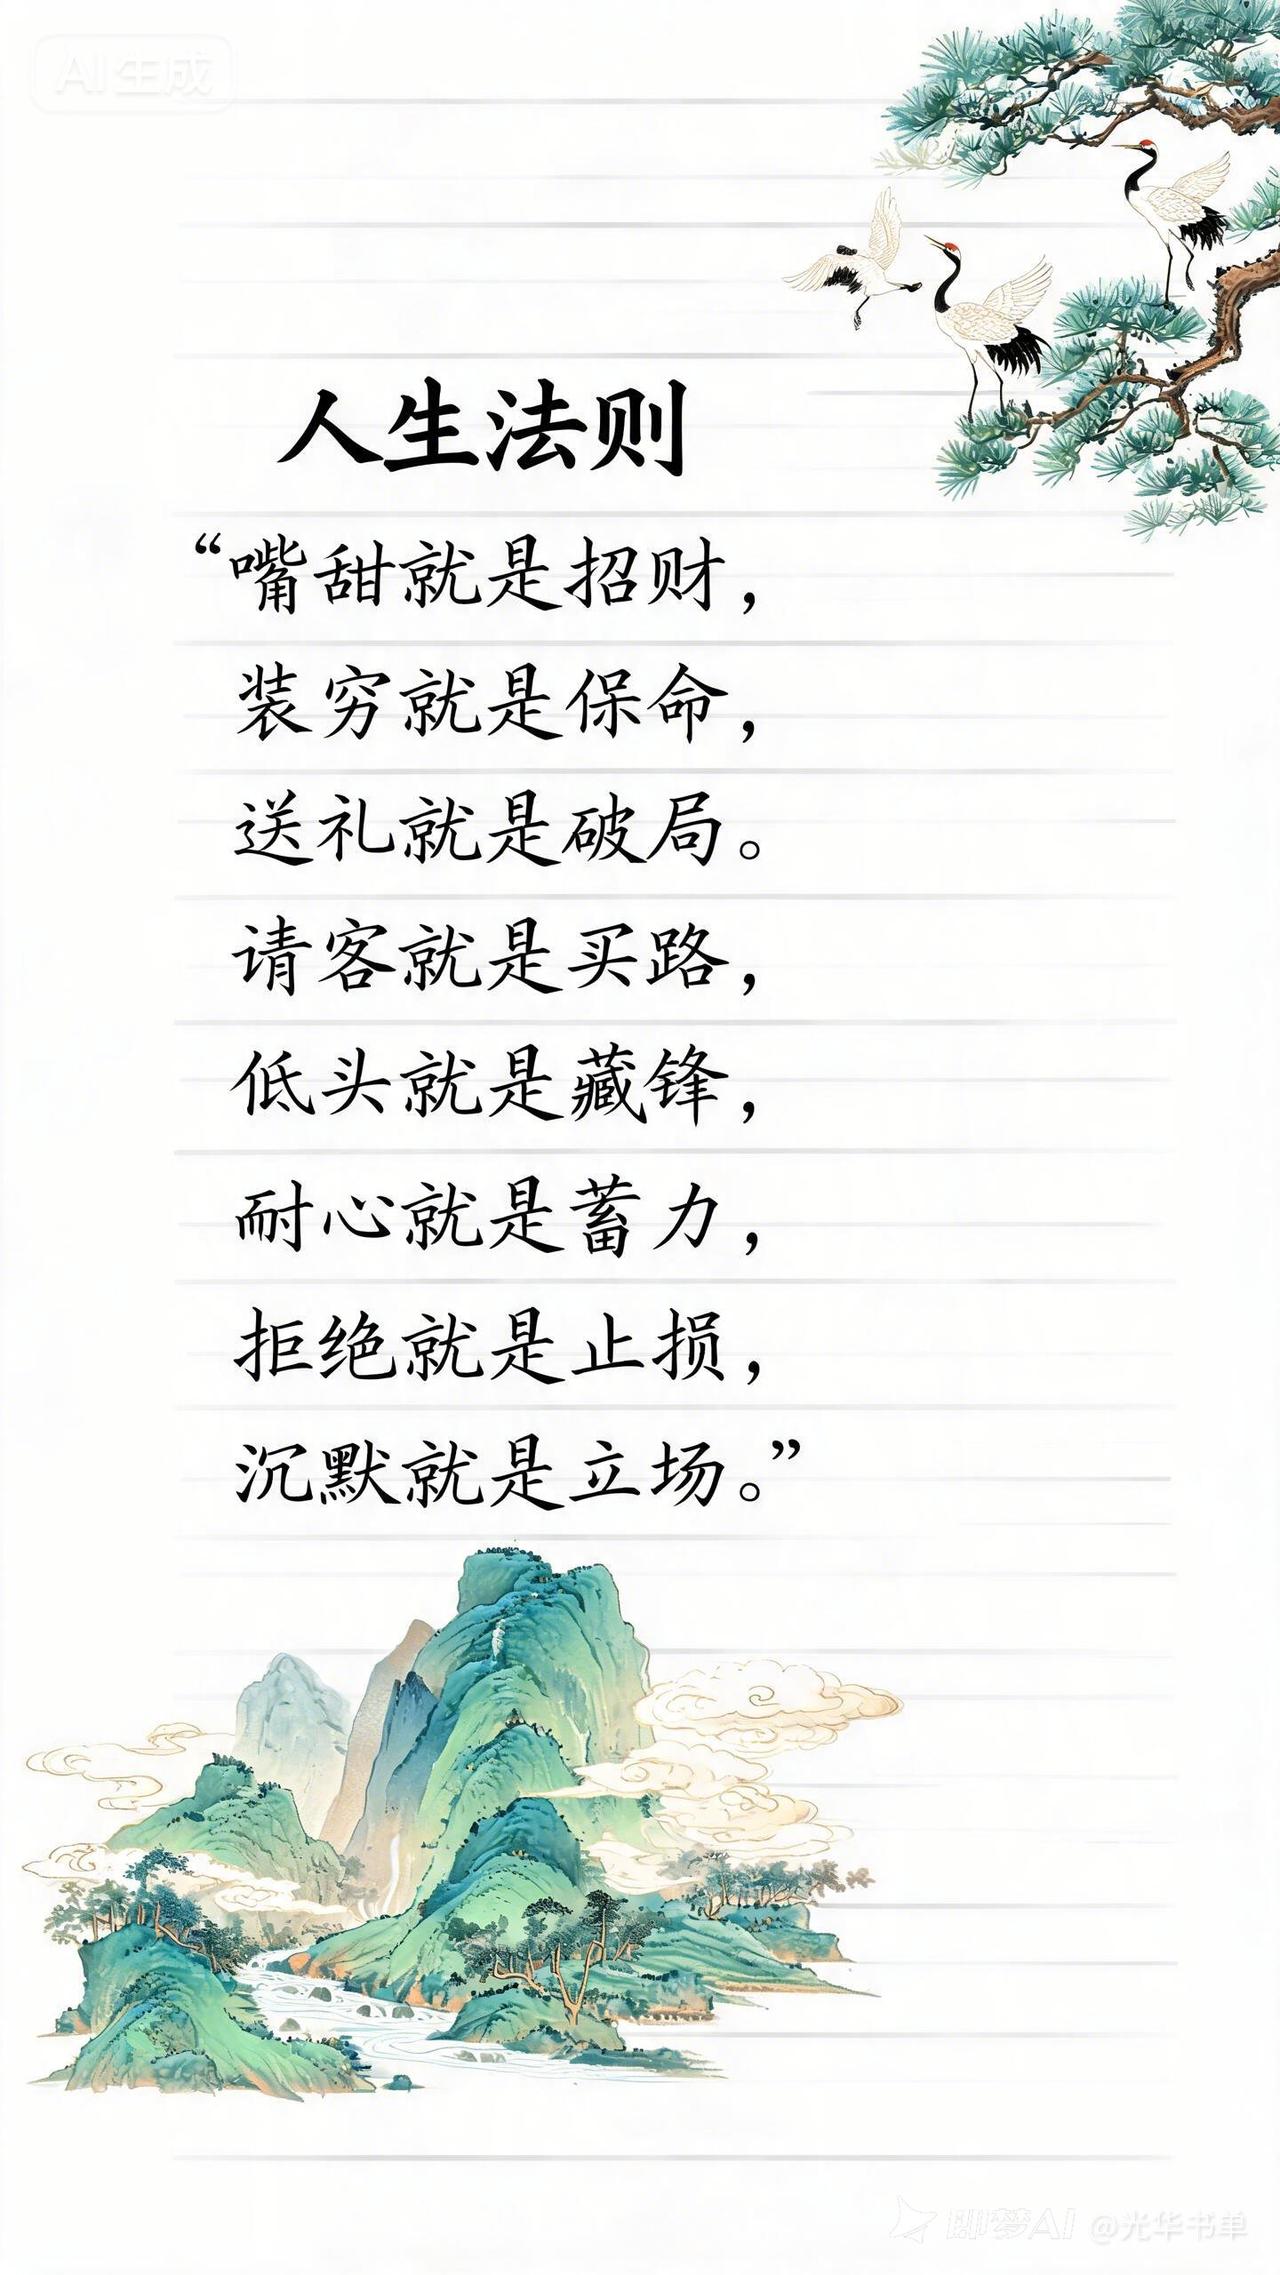 AI生成
人生法则
“嘴甜就是招财，
装穷就是保命，
送礼就是破局。
请客就是买路，
低头就是藏锋，
耐心就是蓄力，
拒绝就是止损，
沉默就是立场。”
即梦AI @光华书单